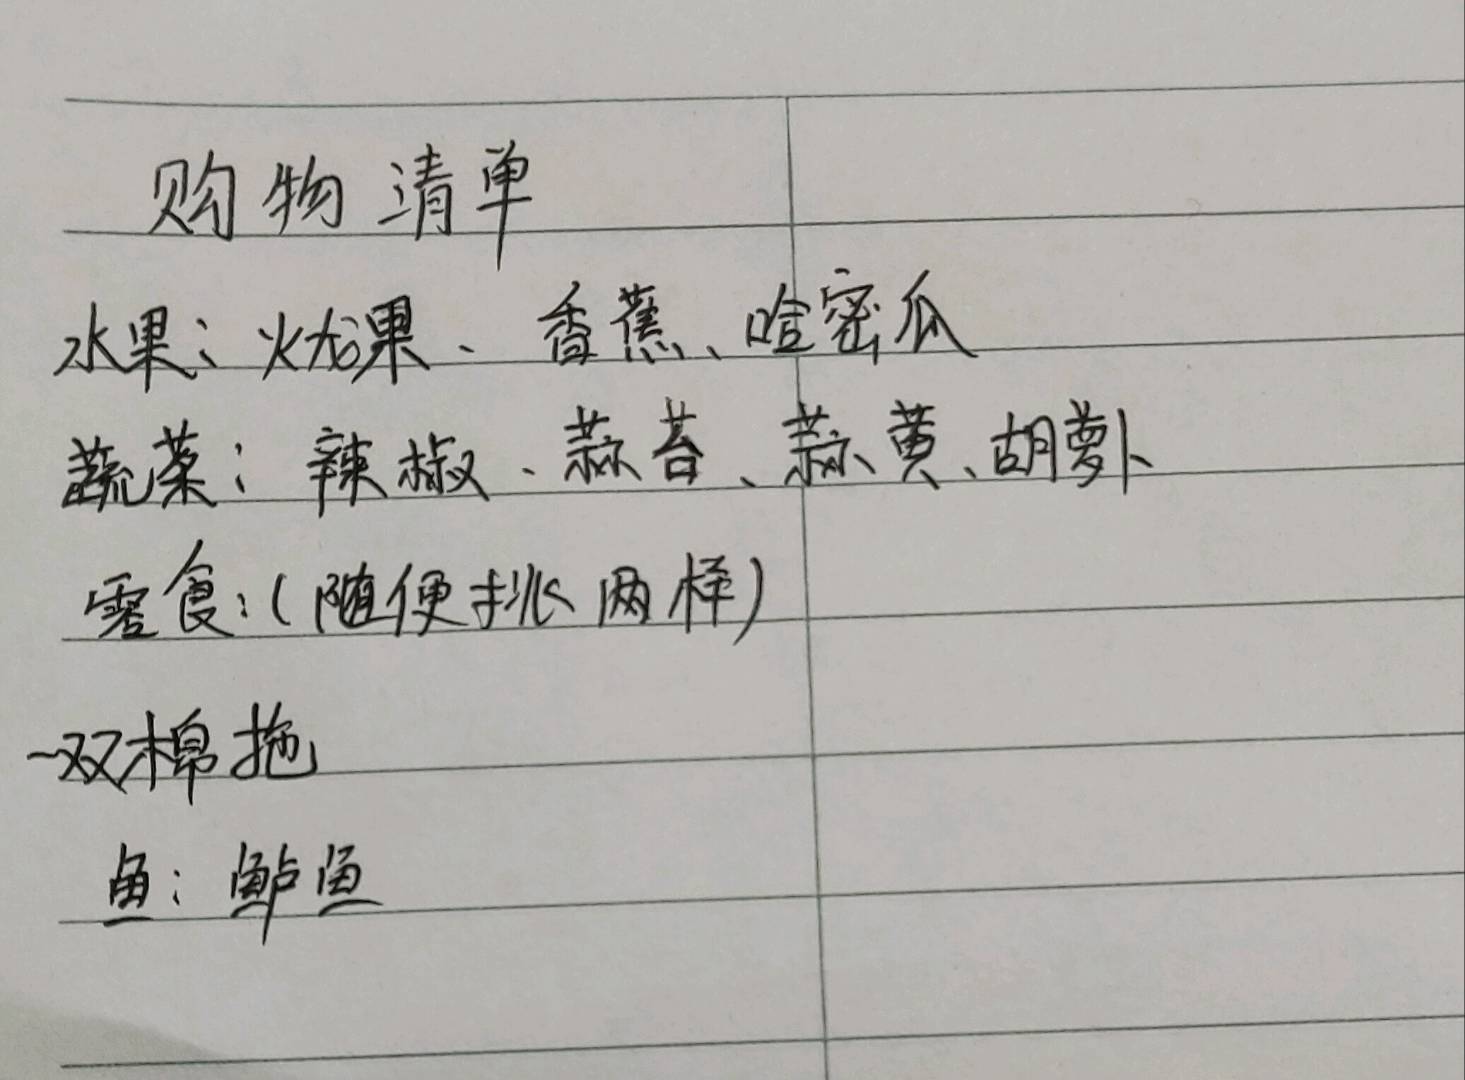 购物清单
水果：火龙果、香蕉、哈密瓜
蔬菜：辣椒、蒜苔、蒜黄、胡萝卜
零食：（随便挑两样）
一双棉拖
鱼：鲈鱼